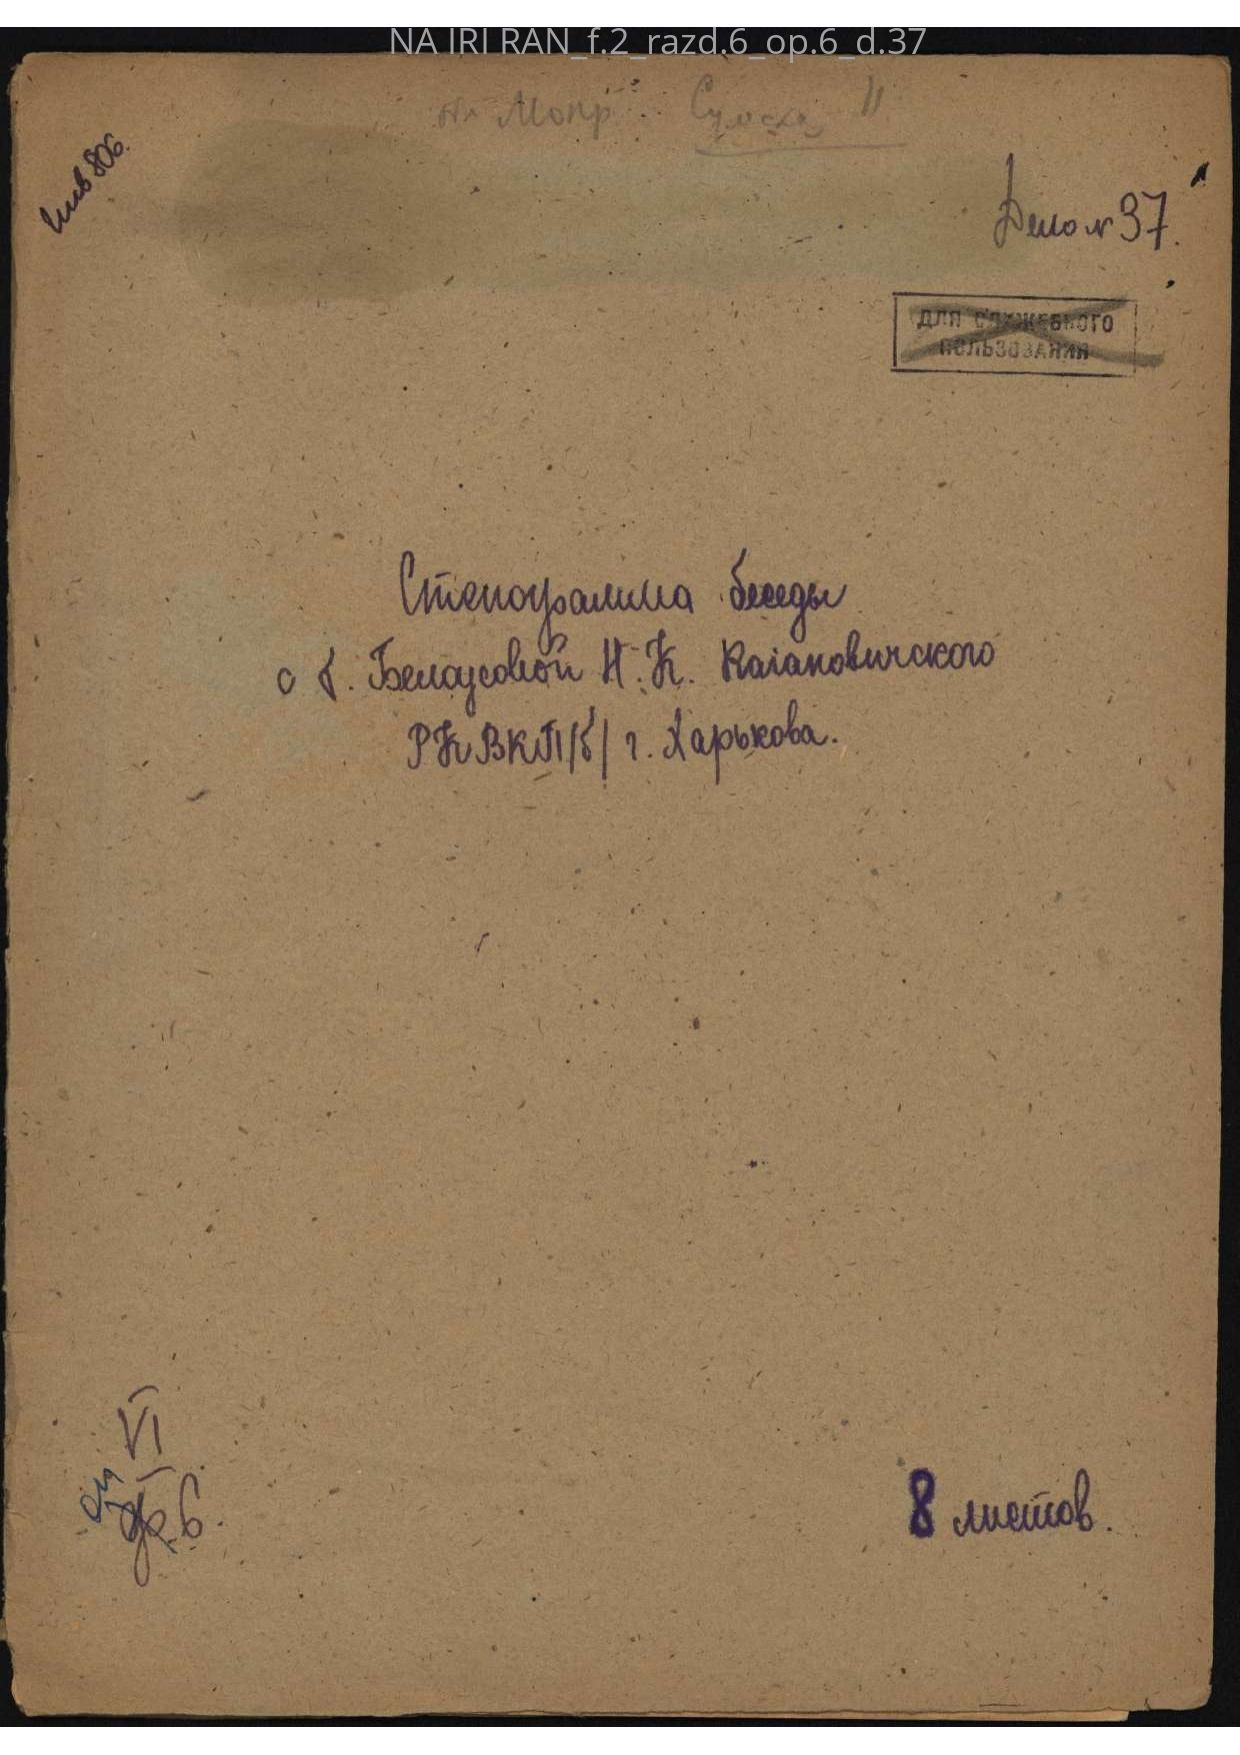 NA IRI RAN_f.2_razd.6_op.6_d.37
Мопр Сумска
инв 806.
Дело № 37.
ДЛЯ СЛУЖЕБНОГО
ПОЛЬЗОВАНИЯ
Стенограмма беседы
с т. Белоусовой Н. К. Кагановичского
РК ВКП/б/ г. Харькова.
VI
оп
6.
8 листов.